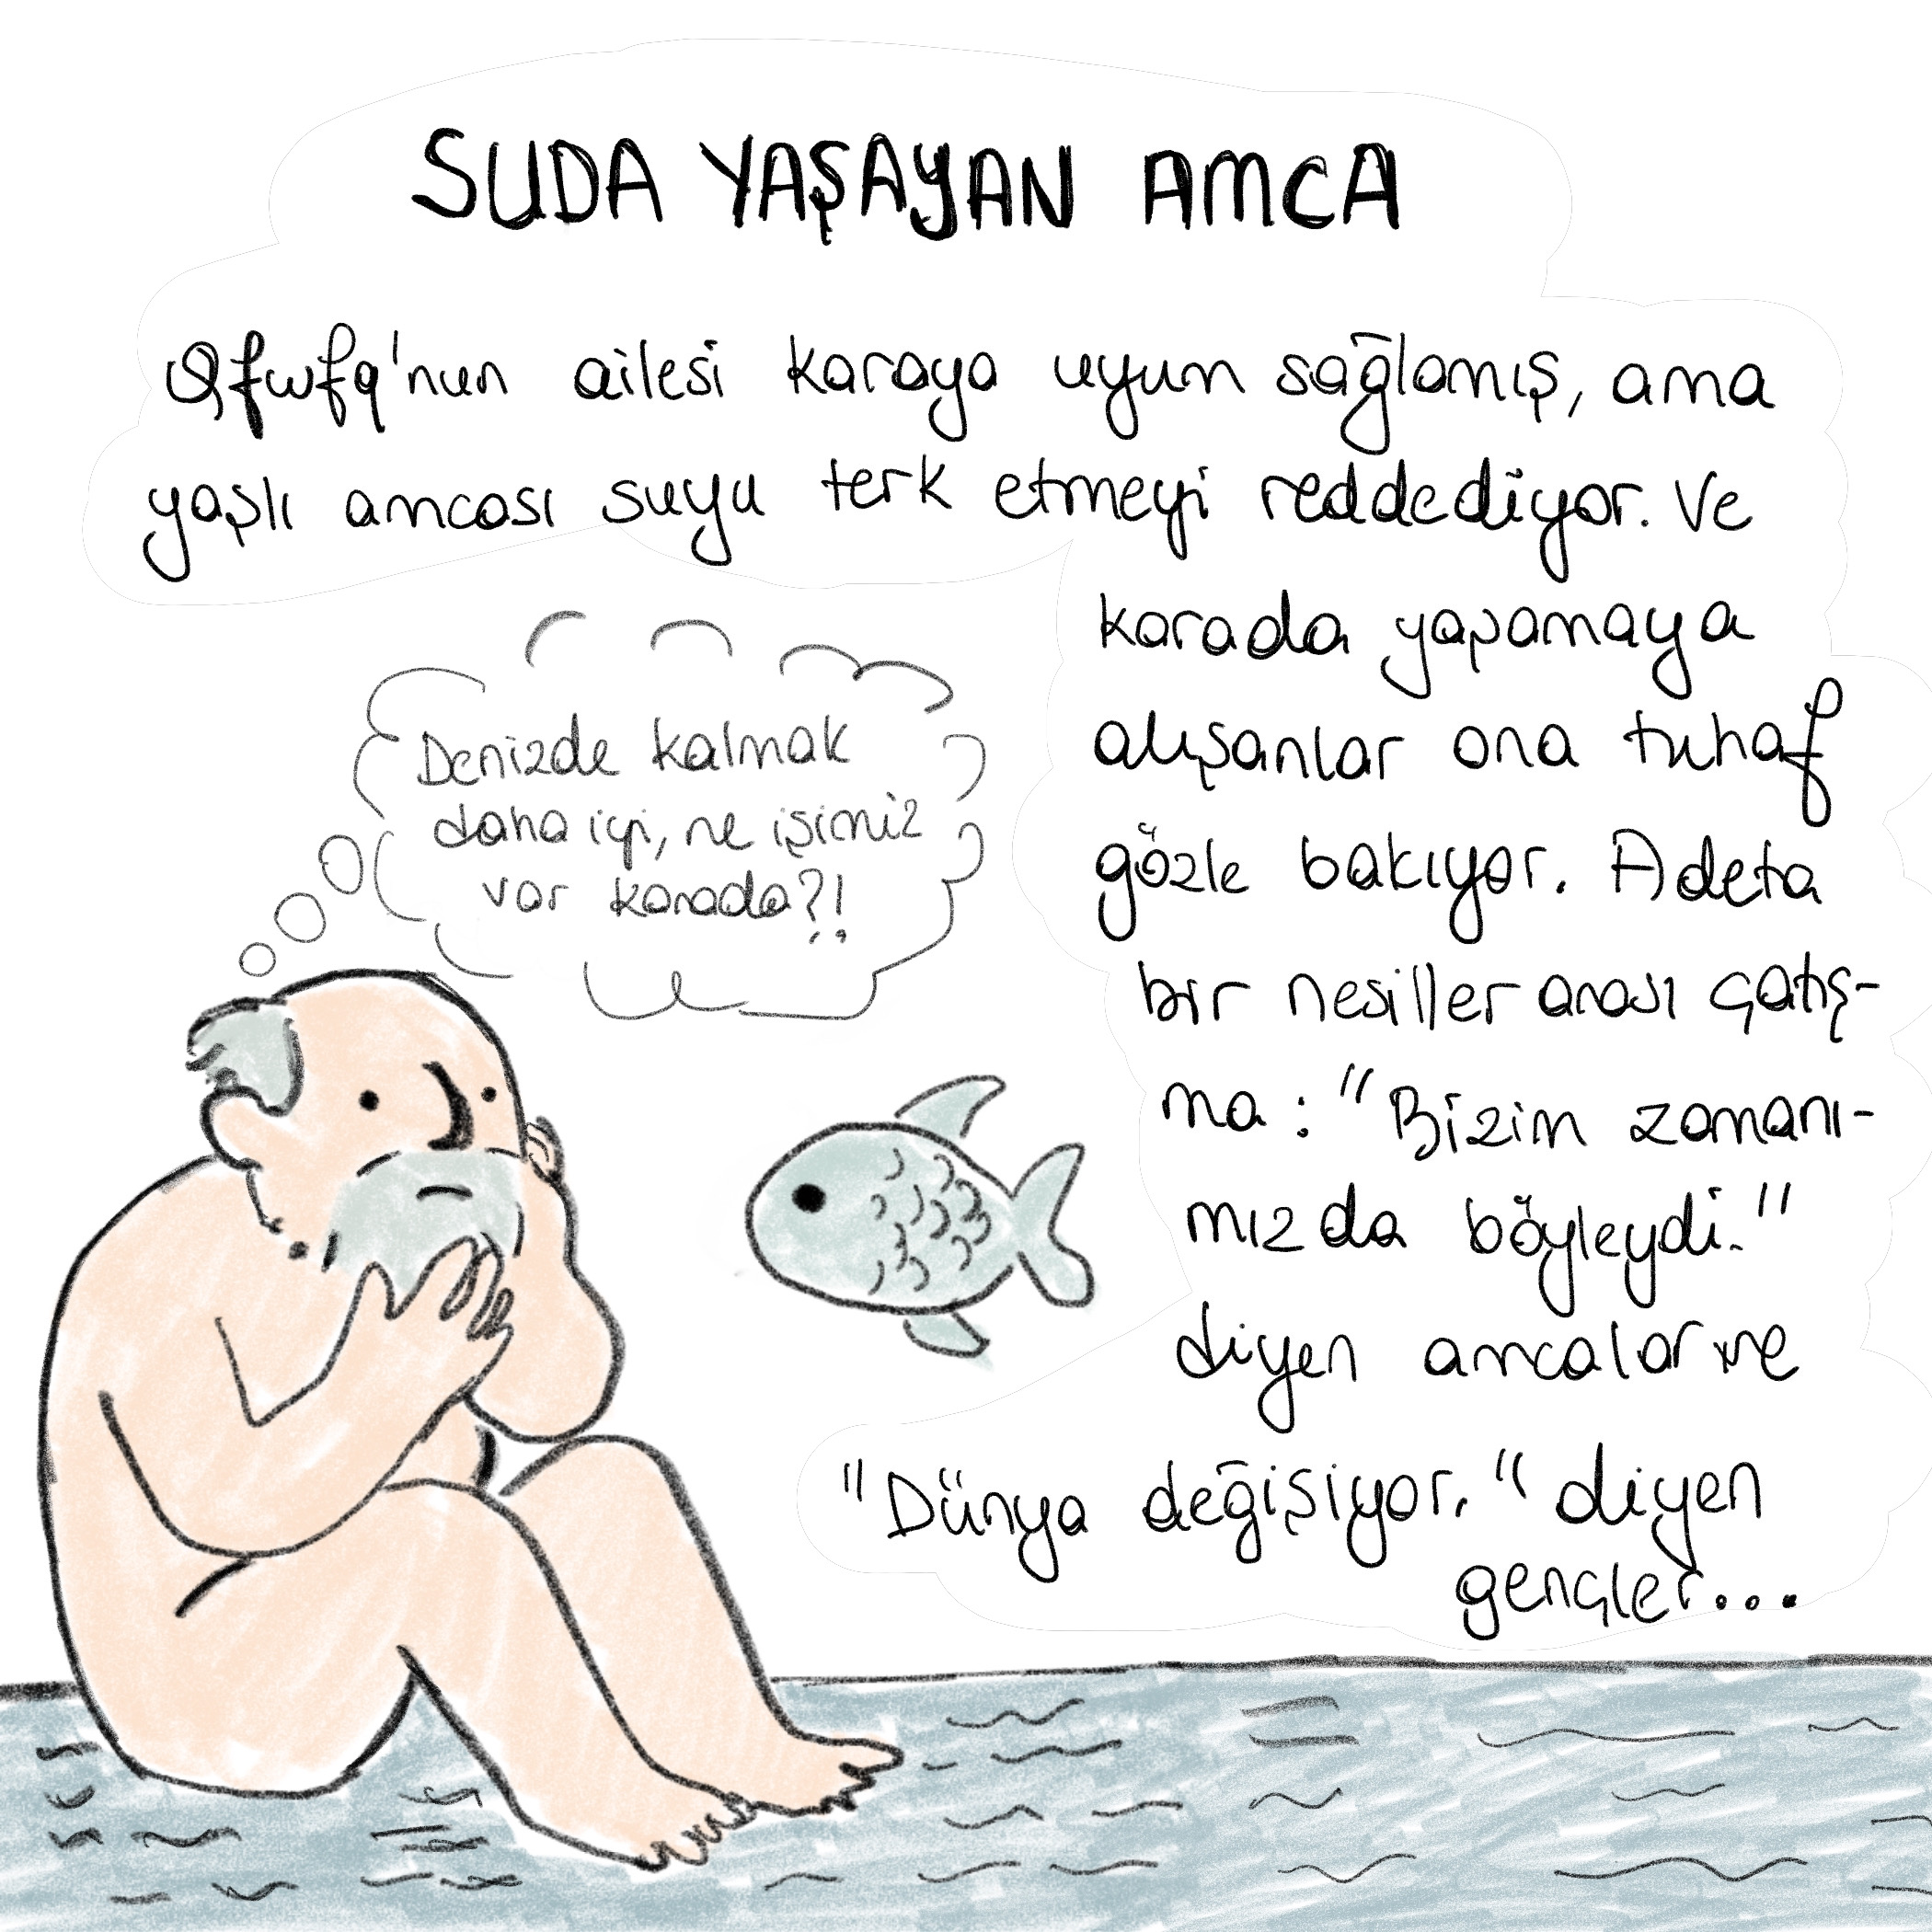 SUDA YAŞAYAN AMCA
Qfwfq'nun ailesi karaya uyum sağlamış, ama
yaşlı amcası suyu terk etmeyi reddediyor. Ve
karada yaşamaya
alışanlar ona tuhaf
gözle bakıyor. Adeta
bir nesiller arası çatış-
ma: "Bizim zamanı-
mızda böyleydi."
diyen amcalar ve
"Dünya değişiyor." diyen
gençler...
Denizde kalmak
daha iyi, ne işimiz
var karada?!